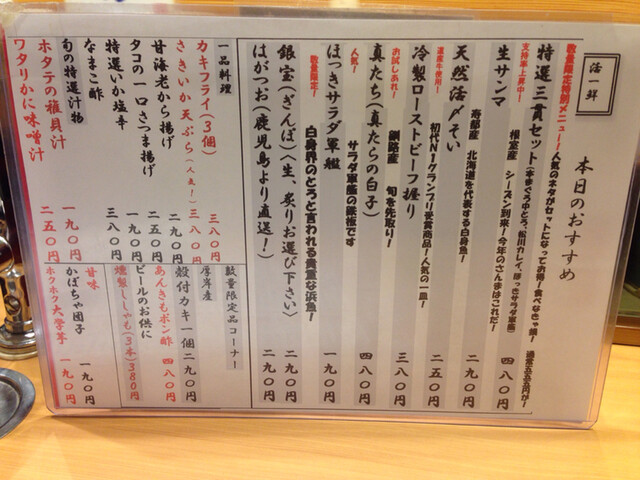 活一鮮
本日のおすすめ
数量限定特別メニュー!人気のネタがセットになってお得!食べなきゃ損!
特選三貫セット(本まぐろ中とろ、松川カレイ、ほっきサラダ軍艦)
四八〇円
支持率上昇中!
生サンマ
根室産 シーズン到来!今年のさんまはこれだ!
二九〇円
天然活〆そい
寿都産 北海道を代表する白身魚!
二九〇円
道産牛使用!
冷製ローストビーフ握り
初代N1グランプリ受賞商品!人気の一皿!
二五〇円
お試しあれ!
真たち(真たらの白子)
釧路産 旬を先取り!
三八〇円
人気!
ほっきサラダ軍艦
サラダ軍艦の豪華版です
一九〇円
数量限定!
銀宝(ぎんぽ)〈生、炙りお選び下さい〉
白身界のとろと言われる貴重な浜魚!
二九〇円
はがつお(鹿児島より直送!)
二九〇円
一品料理
カキフライ(3個)
三八〇円
さきいか天ぷら(人気!)
三八〇円
甘海老から揚げ
二九〇円
タコの一口さつま揚げ
二五〇円
特選いか塩辛
一九〇円
なまこ酢
三八〇円
旬の特選汁物
ホタテの稚貝汁
一九〇円
ワタリかに味噌汁
二五〇円
数量限定品コーナー
厚岸産
殻付カキ一個二九〇円
あんきもポン酢 四八〇円
ビールのお供に
燻製ししゃも(3本)380円
甘味
かぼちゃ団子 一九〇円
ホクホク大学芋 一九〇円